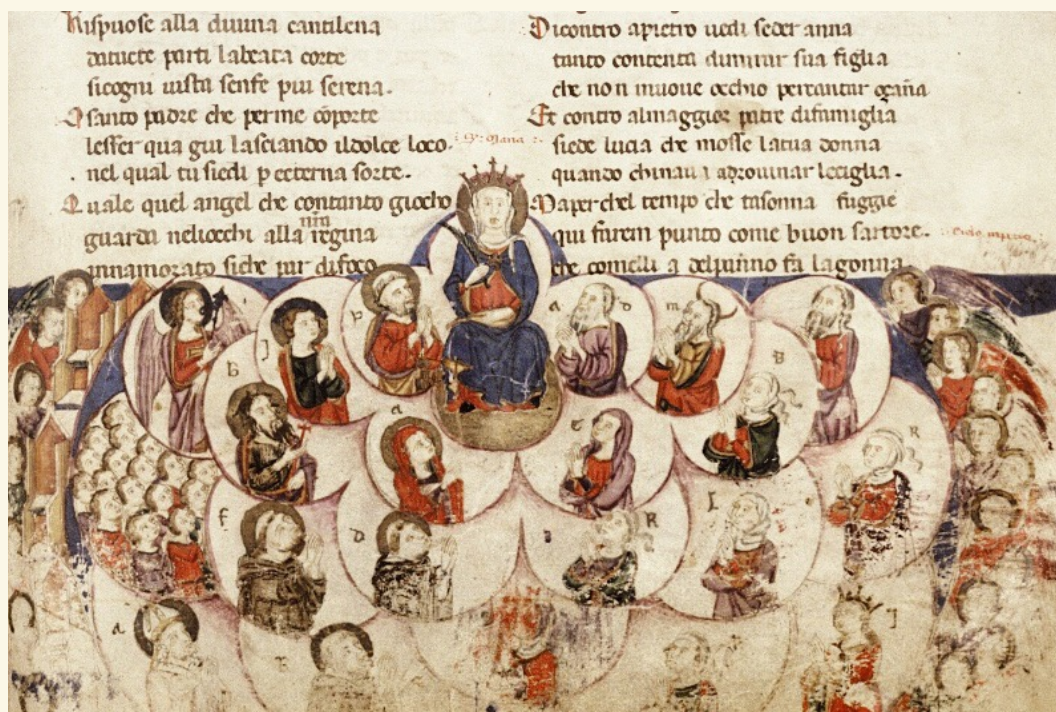 Rispuose alla diuina cantilena
datutte parti labeata corte
sicogni uista senfe piu serena.
O santo padre che perme cōporte
lesser qua giu lasciando ildolce loco.
nel qual tu siedi p etterna sorte.
Quale quel angel che contanto giocho
guarda neliocchi alla regina
innamorato siche par difoco
Dicontro apietro uedi seder anna
tanto contenta dimirar sua figlia
che non muoue occhio percantar osāna
Et contro almaggior patre difamiglia
siede lucia che mosse latua donna
quando chinaui aðrouinar leciglia.
Maperchel tempo che tasonna fuggie
qui farem punto come buon sartore.
che comelli a delpanno fa lagonna
p
a
d
m
b
J
B
a
R
f
D
R
L
a
J